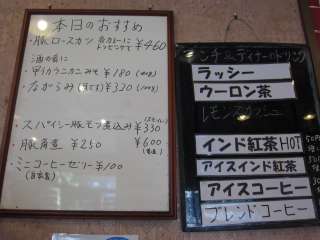 本日のおすすめ
・豚ロースカツ ¥460
酒の肴に
・甲羅カニみそ ¥180
・ながらみ ¥320
・スパイシー豚モツ煮込み ¥330
・豚角煮 ¥250 ¥600
・ミニコーヒーゼリー ¥100
(自家製)
ランチ&ディナーのドリンク
ラッシー
ウーロン茶
レモンスカッシュ
インド紅茶HOT
アイスインド紅茶
アイスコーヒー
ブレンドコーヒー